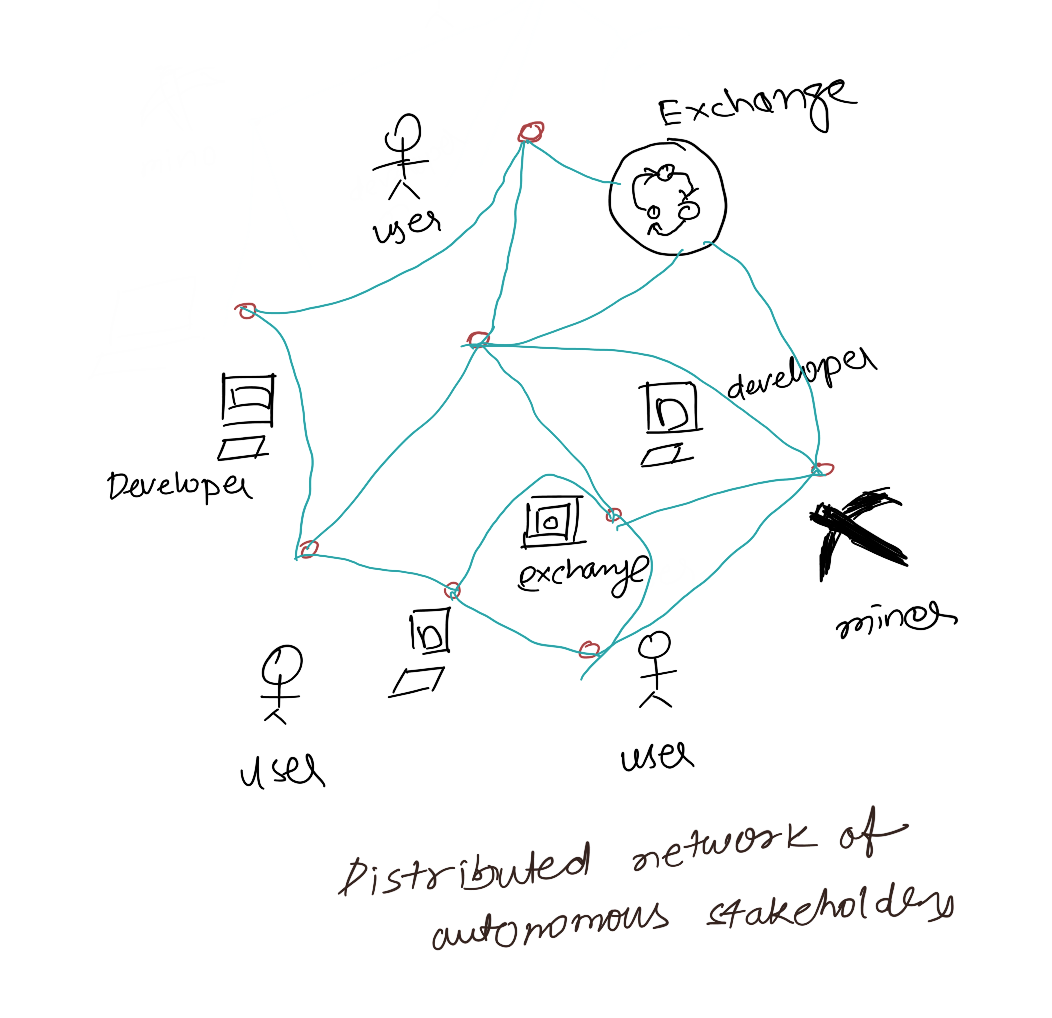 Exchange
user
developer
Developer
exchange
miner
user
user
Distributed network of
autonomous stakeholders